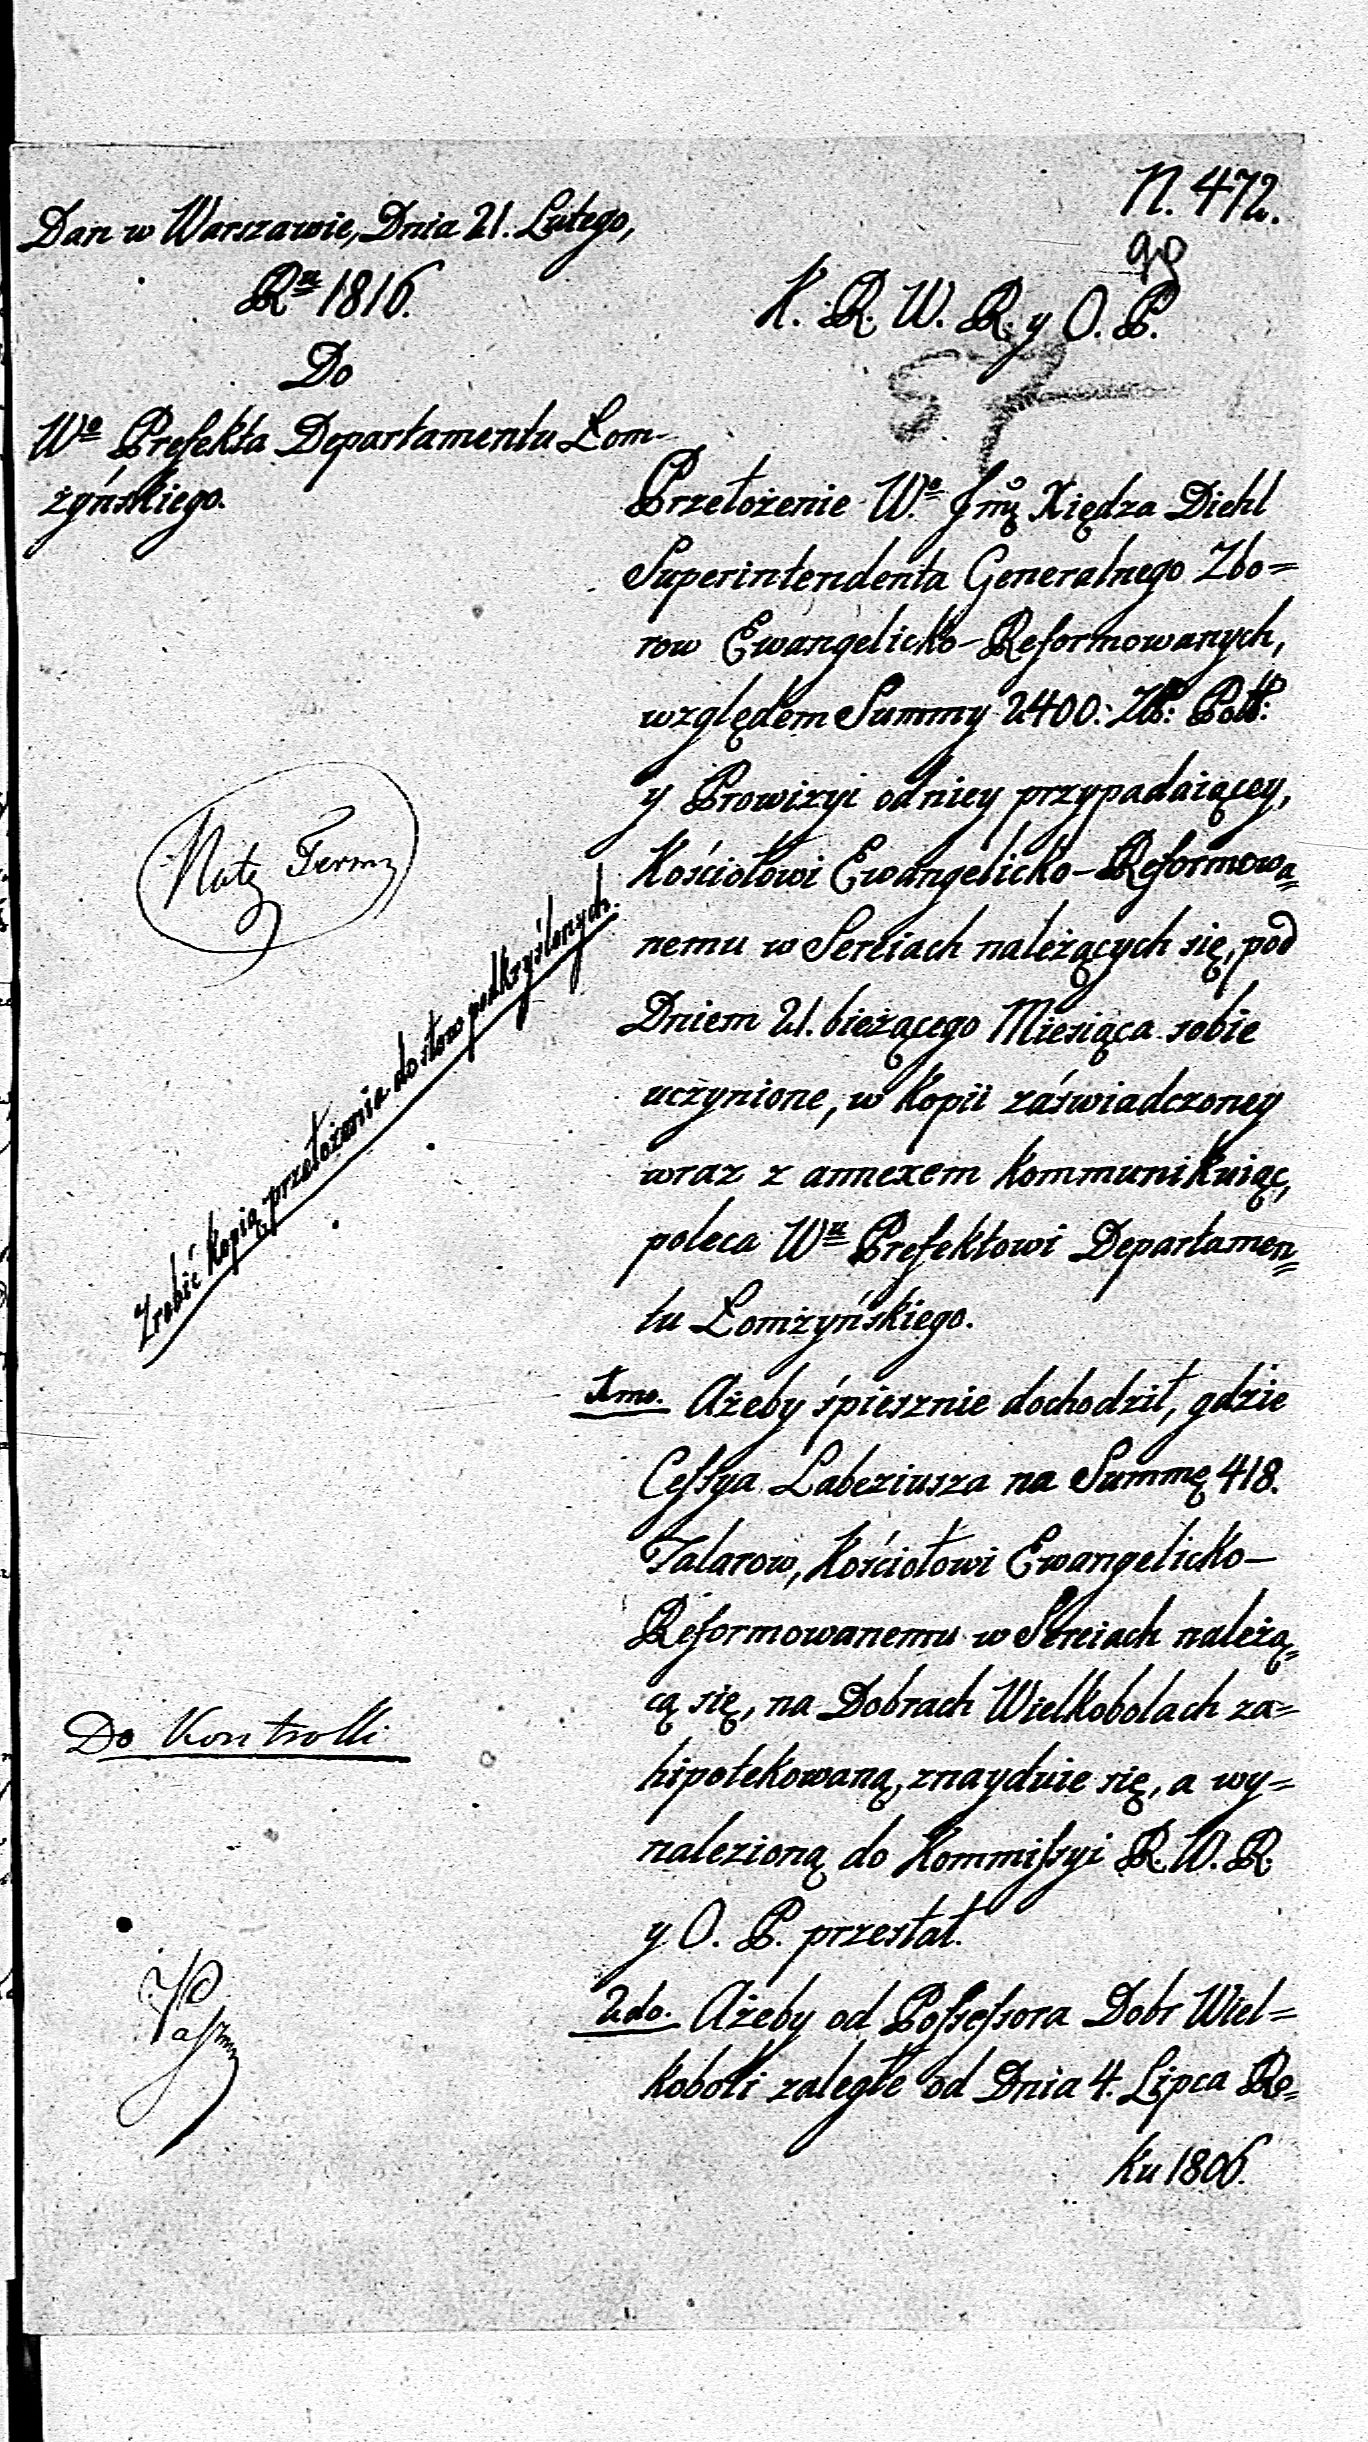 N. 472.
98
Dan w Warszawie, Dnia 21. Lutego,
Ru 1816.
Do
Wo Prefekta Departamentu Łom-
żyńskiego.
K. R. W. R. y O. P.
57
Przełożenie Wo Jmę Xiędza Diehl
Superintendenta Generalnego Zbo=
row Ewangelicko-Reformowanych,
względem Summy 2400: Złł: Poll:
y Prowizyi od niey przypadaiącey,
Kościołowi Ewangelicko-Reformowa=
nemu w Sereiach należących się, pod
Dniem 21. bieżącego Miesiąca sobie
uczynione, w Kopii záświadczoney
wraz z annexem kommunikuiąc,
poleca Wu Prefektowi Departamen=
tu Łomżyńskiego.
1mo. Ażeby śpiesznie dochodził, gdzie
Cessya Labeziusza na Summę 418.
Talarow, Kościołowi Ewangelicko-
Reformowanemu w Sereiach należą=
cą się, na Dobrach Wielkobolach za=
hipotekowaną, znayduie się, a wy=
nalezioną do Kommissyi R. W. R.
y O. P. przesłał.
2do. Ażeby od Possessora Dobr Wiel=
koboli zaległe od Dnia 4. Lipca Ro=
ku 1806.
Notę
Zrobić kopią przełożenia do słow podkryślonych.
Do Kontrolli